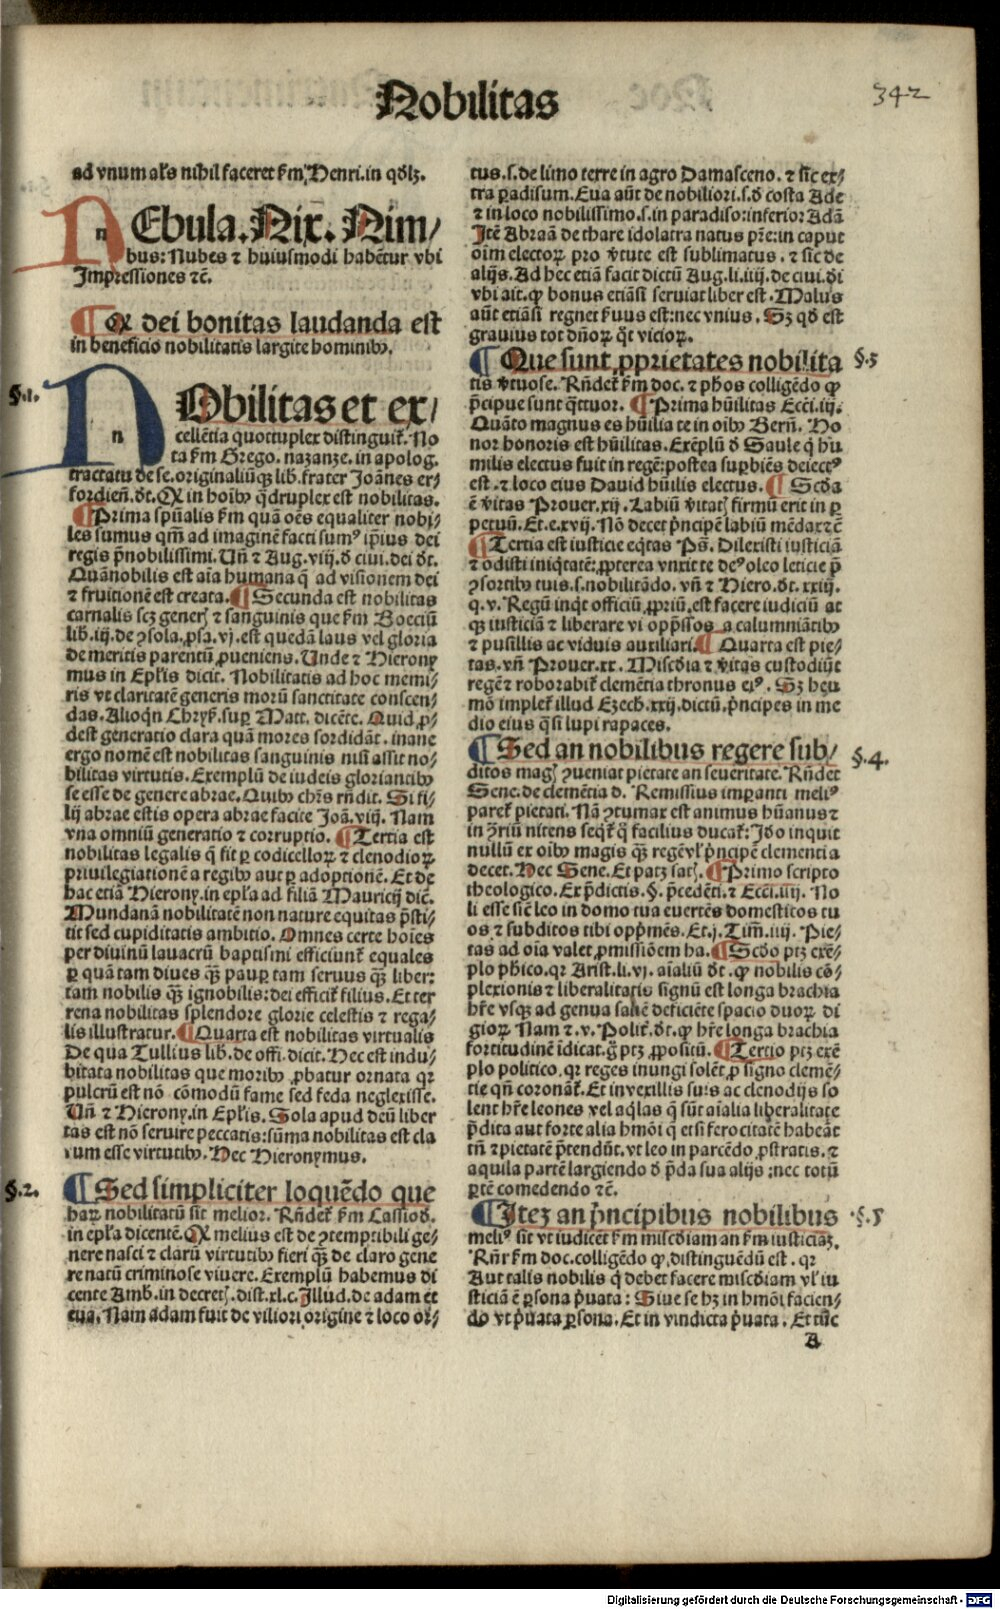 Nobilitas
342
ad vnum al's nihil faceret ẜm Henri. in qđlȝ.
NEbula. Nix. Nim/
bus: Nubes ⁊ huiusmodi habētur vbi
Impressiones ⁊c̄.
¶ Qꝫ dei bonitas laudanda est
in beneficio nobilitatis largite hominibꝫ.
§.1.
NObilitas et ex/
cellētia quottuplex distinguit᷑. No
ta ẜm Grego. nazanze. in apolog.
tractatu de se. originaliūqꝫ lib. frater Joānes er/
fordień. ðt. Qꝫ in hoībꝫ q̄druplex est nobilitas.
¶ Prima spūalis ẜm quā oēs equaliter nobi/
les sumus qm̄ ad imaginē facti sumꝰ ip̄ius dei
regis p̄nobilissimi. Vn̄ ⁊ Aug. viij. đ ciui. dei ðt.
Quānobilis est aīa humana q̄ ad visionem dei
⁊ fruitionē est creata. ¶ Secunda est nobilitas
carnalis scꝫ generꝭ ⁊ sanguinis que ẜm Boeciū
lib. iij. de ꝯsola. ꝓsa. vj. est quedā laus vel gloria
de meritis parentū ꝓueniens. Unde ⁊ Hierony
mus in Epl'is dicit. Nobilitatis ad hoc memi/
ris vt claritatē generis morū sanctitate conscen/
das. Alioq̇n Chryẜ. suꝑ Matt. dicēte. Quid ꝓ/
dest generatio clara quā mores sordidāt. inane
ergo nomē est nobilitas sanguinis nisi assit no/
bilitas virtutis. Exemplū de iudeis gloriantibꝫ
se esse de genere abrae. Quibꝫ chr̄s rn̄dit. Si fi/
lij abrae estis opera abrae facite Joā. viij. Nam
vna omniū generatio ⁊ corruptio. ¶ Tertia est
nobilitas legalis q̄ fit ꝑ codicelloꝝ ⁊ clenodioꝝ
priuilegiationē a regibꝫ aut ꝑ adoptionē. Et de
hac etiā Hierony. in epl'a ad filiā Mauricij dic̄.
Mundanā nobilitatē non nature equitas p̄sti/
tit sed cupiditatis ambitio. Omnes certe hoīes
per diuinū lauacrū baptismi efficiunt᷑ equales
ꝑ quā tam diues qꝫ̄ pauꝑ tam seruus qꝫ̄ liber:
tam nobilis qꝫ̄ ignobilis: dei efficit᷑ filius. Et ter
rena nobilitas splendore glorie celestis ⁊ rega/
lis illustratur. ¶ Quarta est nobilitas virtualis
De qua Tullius lib. de offi. dicit. Hec est indu/
bitata nobilitas que moribꝫ ꝓbatur ornata qꝛ
pulcrū est nō cōmodū fame sed feda neglexisse.
Un̄ ⁊ Hierony. in Epl'is. Sola apud deū liber
tas est nō seruire peccatis: sūma nobilitas est cla
rum esse virtutibꝫ. Hec Hieronymus.
§.2.
¶ Sed simpliciter loquēdo que
haꝝ nobilitatū sit melior. Rn̄det᷑ ẜm Cassiođ.
in epl'a dicentē. Qꝫ melius est de ꝯtemptibili ge/
nere nasci ⁊ clarū virtutibꝫ fieri qꝫ̄ de claro gene
re natū criminose viuere. Exemplū habemus di
cente Amb. in decretꝭ. dist. xl. c. Illud. de adam et
eua. Nam adam fuit de viliori origine ⁊ loco or/
tus. s. de limo terre in agro Damasceno. ⁊ sic ex/
tra ꝑadisum. Eua aūt de nobiliori. s. đ costa Ade
⁊ in loco nobilissimo. s. in paradiso: inferior Adā
Itē Abraā de thare idolatra natus pr̄e: in caput
oīm electoꝝ pro v̄tute est sublimatus. ⁊ sic de
alijs. Ad hec etiā facit dictū Aug. li. iiij. de ciui. di
vbi ait. ꝙ bonus etiāsi seruiat liber est. Malus
aūt etiāsi regnet ẜuus est: nec vnius. Sꝫ qđ est
grauius tot dn̄oꝝ q̄t vicioꝝ.
¶ Que sunt ꝓprietates nobilita
§.3
tis v̄tuose. Rn̄det᷑ ẜm doc. ⁊ ph̄os colligēdo ꝙ
p̄cipue sunt q̄ttuor. ¶ Prima hūilitas Ecci. iij.
Quāto magnus es hūilia te in oībꝫ Bern̄. Ho
nor honoris est hūilitas. Exēplū đ Saule q̇ hu
milis electus fuit in regē: postea suꝑbiēs deiectꝰ
est. ⁊ loco eius Dauid hūilis electus. ¶ Scđa
ē v̄itas Prouer. xij. Labiū v̄itatꝭ firmū erit in ꝑ
petuū. Et. e. xvij. Nō decet p̄ncipē labiū mēdax ⁊c̄
¶ Tertia est iusticie eq̇tas Ps̄. Dilexisti iusticiā
⁊ odisti iniq̇tatē: ꝓpterea vnxit te deꝰ oleo leticie p̄
ꝯsortibꝫ tuis. s. nobilitādo. vn̄ ⁊ Hiero. ðt. xxiij.
q. v. Regū inq̇t officiū ꝓpriū. est facere iudiciū at
qꝫ iusticiā ⁊ liberare vi opp̄ssos a calumniātibꝫ
⁊ pusillis ac viduis auxiliari. ¶ Quarta est pie/
tas. vn̄ Prouer. xx. Miscđia ⁊ v̄itas custodiūt
regē ⁊ roborabit᷑ clemētia thronus eiꝰ. Sꝫ heu
mō implet᷑ illud Ezech. xxij. dictū. p̄ncipes in me
dio eius q̄si lupi rapaces.
¶ Sed an nobilibus regere sub/
§.4.
ditos magꝭ ꝯueniat pietate an seueritate. Rn̄det
Sene. de clemētia đ. Remissius imꝑanti meliꝰ
paret᷑ pietati. Nā ꝯtumax est animus hūanus ⁊
in ꝯ̄riū nitens seq̇t᷑ q̇ facilius ducat᷑: Iđo inquit
nullū ex oībꝫ magis qꝫ̄ regē vl' p̄ncipē clementia
decet. Hec Sene. Et patꝫ satꝭ. ¶ Primo scripto
theologico. Ex p̄dictis. §. p̄cedēti. ⁊ Ecci. iiij. No
li esse sic̄ leo in domo tua euertēs domesticos tu
os ⁊ subditos tibi opp̄mēs. Et. j. Tim̄. iiij. Pie/
tas ad oīa valet ꝓmissiōem ha. ¶ Scđo ptꝫ exē/
plo ph̄ico. qꝛ Arist. li. vj. aīaliū ðt. ꝙ nobilis cō/
plexionis ⁊ liberalitatis signū est longa brachia
hr̄e vsqꝫ ad genua saltē deficiēte spacio duoꝝ di
gioꝝ. Nam ⁊. v. Polit᷑. ðt. ꝙ hr̄e longa brachia
fortitudinē īdicat. g̊ ptꝫ ꝓpositū. ¶ Tertio ptꝫ exē
plo politico. qꝛ reges inungi solēt ꝓ signo clemē/
tie qn̄ coronāt᷑. Et in vexillis suis ac clenodijs so
lent hr̄e leones vel aq̇las q̄ sūt aīalia liberalitate
p̄dita aut forte alia hmōi q̄ etsi ferocitatē habeāt
tn̄ ⁊ pietatē p̄tendūt. vt leo in parcēdo ꝓstratis. ⁊
aquila partē largiendo đ p̄da sua alijs: nec totū
ꝑtē comedendo ⁊c̄.
¶ Itez an p̄ncipibus nobilibus
§.5
meliꝰ sit vt iudicet᷑ ẜm miscđiam an ẜm iusticiaꝫ.
Rn̄r ẜm doc. colligēdo ꝙ distinguēdū est. qꝛ
Aut talis nobilis q̇ debet facere miscđiam vl' iu
sticiā ē ꝑsona p̄uata: Siue se hꝫ in hmōi facien/
do vt p̄uata ꝑsona. Et in vindicta p̄uata. Et tūc
A
Digitalisierung gefördert durch die Deutsche Forschungsgemeinschaft - DFG